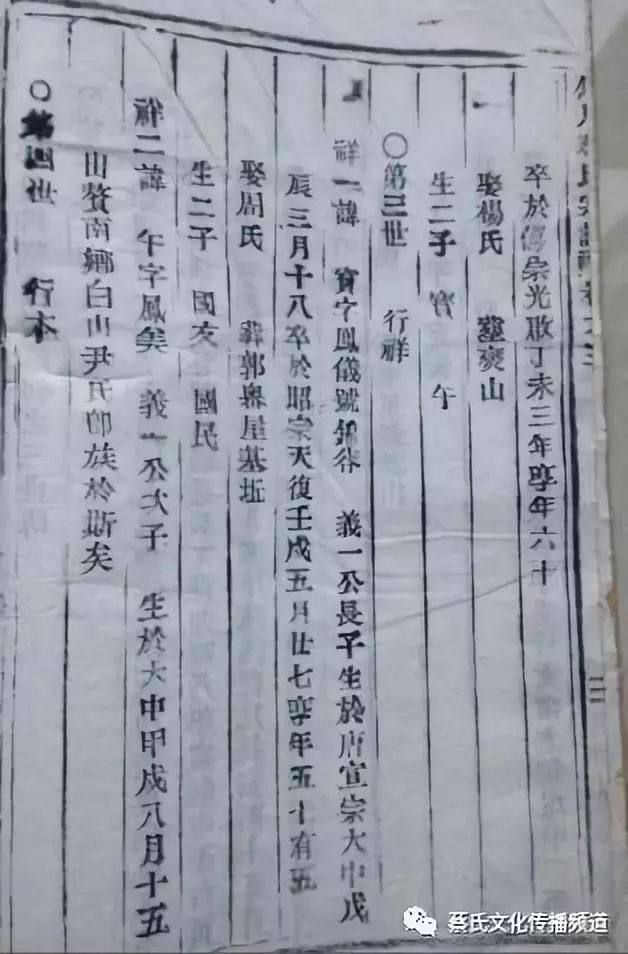 卒於僖宗光啟丁未三年享年六十
娶楊氏 葬夾山
生二子 寶 午
○第三世 行祥
祥一諱 寶字鳳儀號 義一公長子生於唐宣宗大中戊
辰三月十八卒於昭宗天復壬戌五月廿七享年五十有五
娶周氏 葬郭界屋基坵
生二子 國友 國民
祥二諱 午字鳳矣 義一公次子 生於大中甲戌八月十五
出贅南鄉白山尹氏即族於斯矣
○第四世 行本
蔡氏文化传播频道